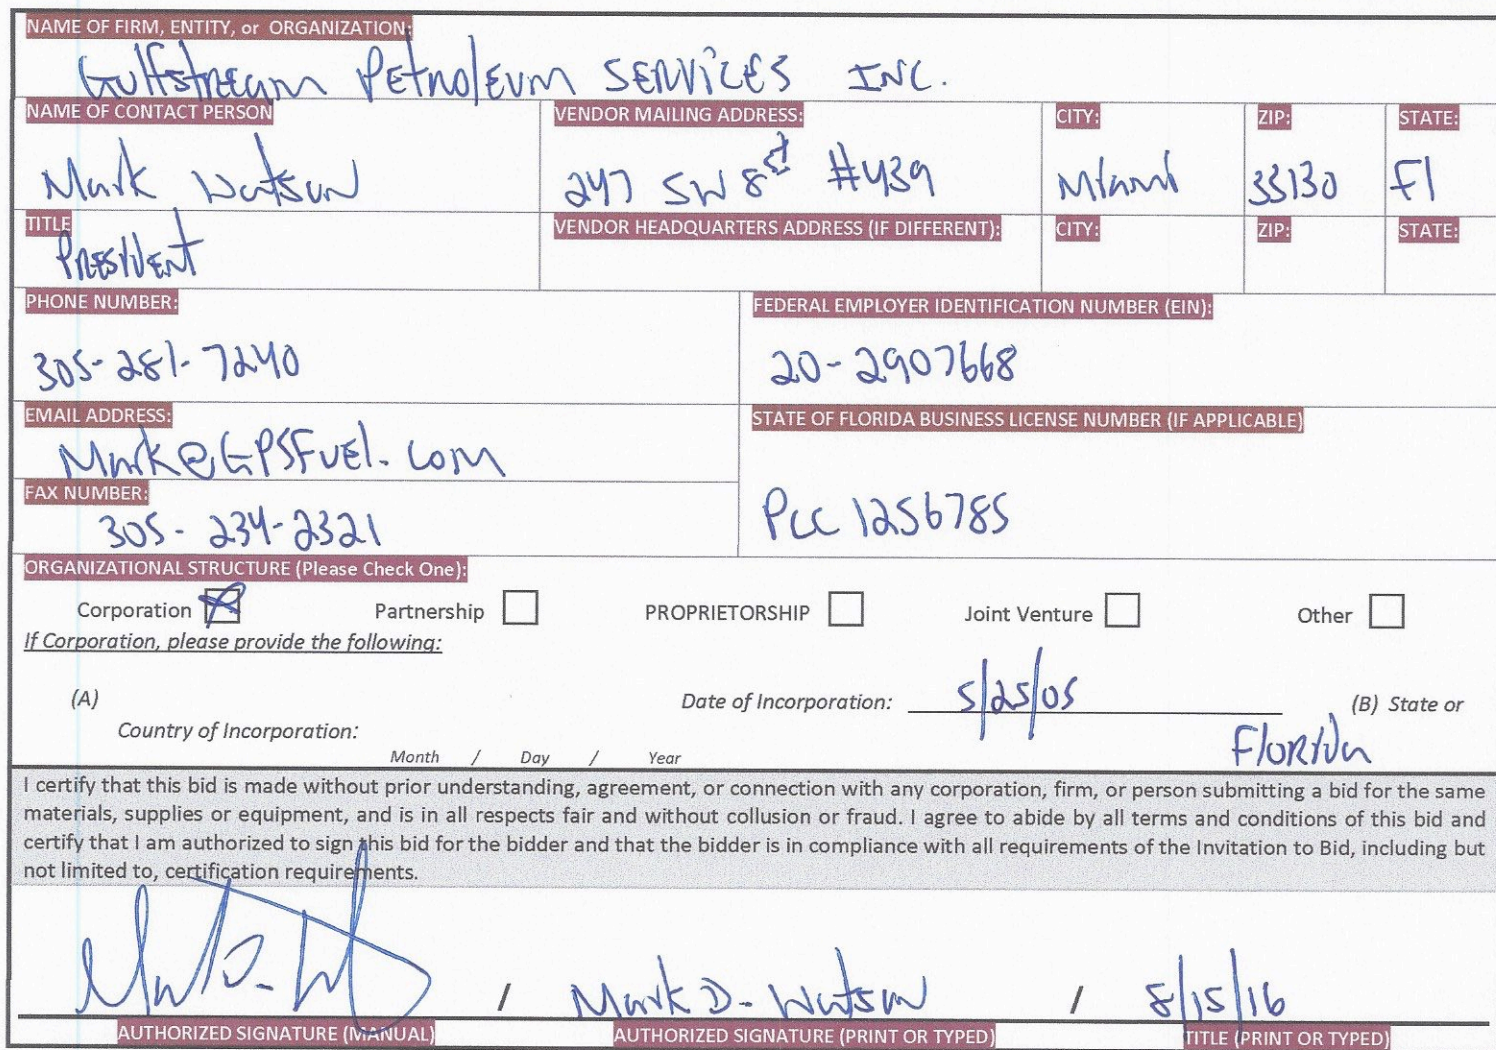 NAME OF FIRM, ENTITY, or ORGANIZATION:
Gulfstream Petroleum SERVICES INC.
NAME OF CONTACT PERSON VENDOR MAILING ADDRESS: CITY: ZIP: STATE:
Mark Watson 247 SW 8st #439 Miami 33130 Fl
TITLE VENDOR HEADQUARTERS ADDRESS (IF DIFFERENT): CITY: ZIP: STATE:
President
PHONE NUMBER: FEDERAL EMPLOYER IDENTIFICATION NUMBER (EIN):
305-281-7240 20-2907668
EMAIL ADDRESS: STATE OF FLORIDA BUSINESS LICENSE NUMBER (IF APPLICABLE)
Mark@GPSFuel.com
FAX NUMBER:
305-234-2321 PCC 1256785
ORGANIZATIONAL STRUCTURE (Please Check One):
Corporation Partnership PROPRIETORSHIP Joint Venture Other
If Corporation, please provide the following:
(A) Date of Incorporation: 5/25/05 (B) State or
Country of Incorporation: Florida
Month / Day / Year
I certify that this bid is made without prior understanding, agreement, or connection with any corporation, firm, or person submitting a bid for the same
materials, supplies or equipment, and is in all respects fair and without collusion or fraud. I agree to abide by all terms and conditions of this bid and
certify that I am authorized to sign this bid for the bidder and that the bidder is in compliance with all requirements of the Invitation to Bid, including but
not limited to, certification requirements.
/ Mark D. Watson / 8/15/16
AUTHORIZED SIGNATURE (MANUAL) AUTHORIZED SIGNATURE (PRINT OR TYPED) TITLE (PRINT OR TYPED)